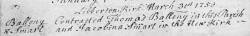 Libberton Kirk March 3d 1750
Balleny Contracted Thomas Balleny in this Parish
& Smart and Jacobina Smart in the New Kirk